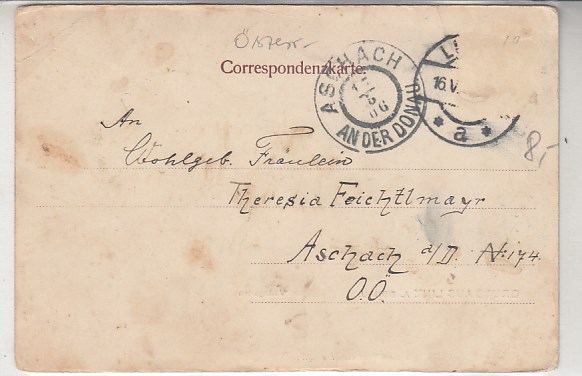 Österr
Correspondenzkarte.
ASCHACH
AN DER DONAU
16.V.
* a *
8,-
An
Wohlgeb. Fräulein
Theresia Feichtlmayr
Aschach a/D. N: 174
O.Ö.